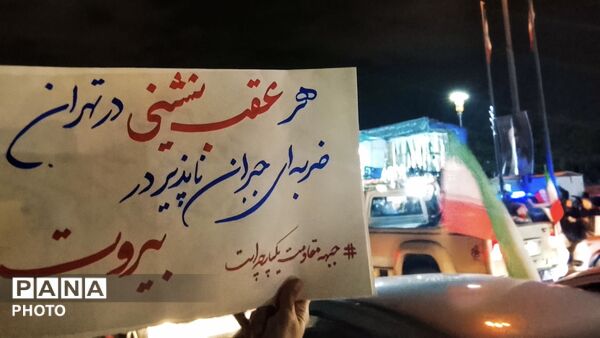 هر عقب نشینی در تهران
ضربه‌ای جبران ناپذیر در
بیروت
#جبهه_مقاومت_یکپارچه_است
PANA
PHOTO